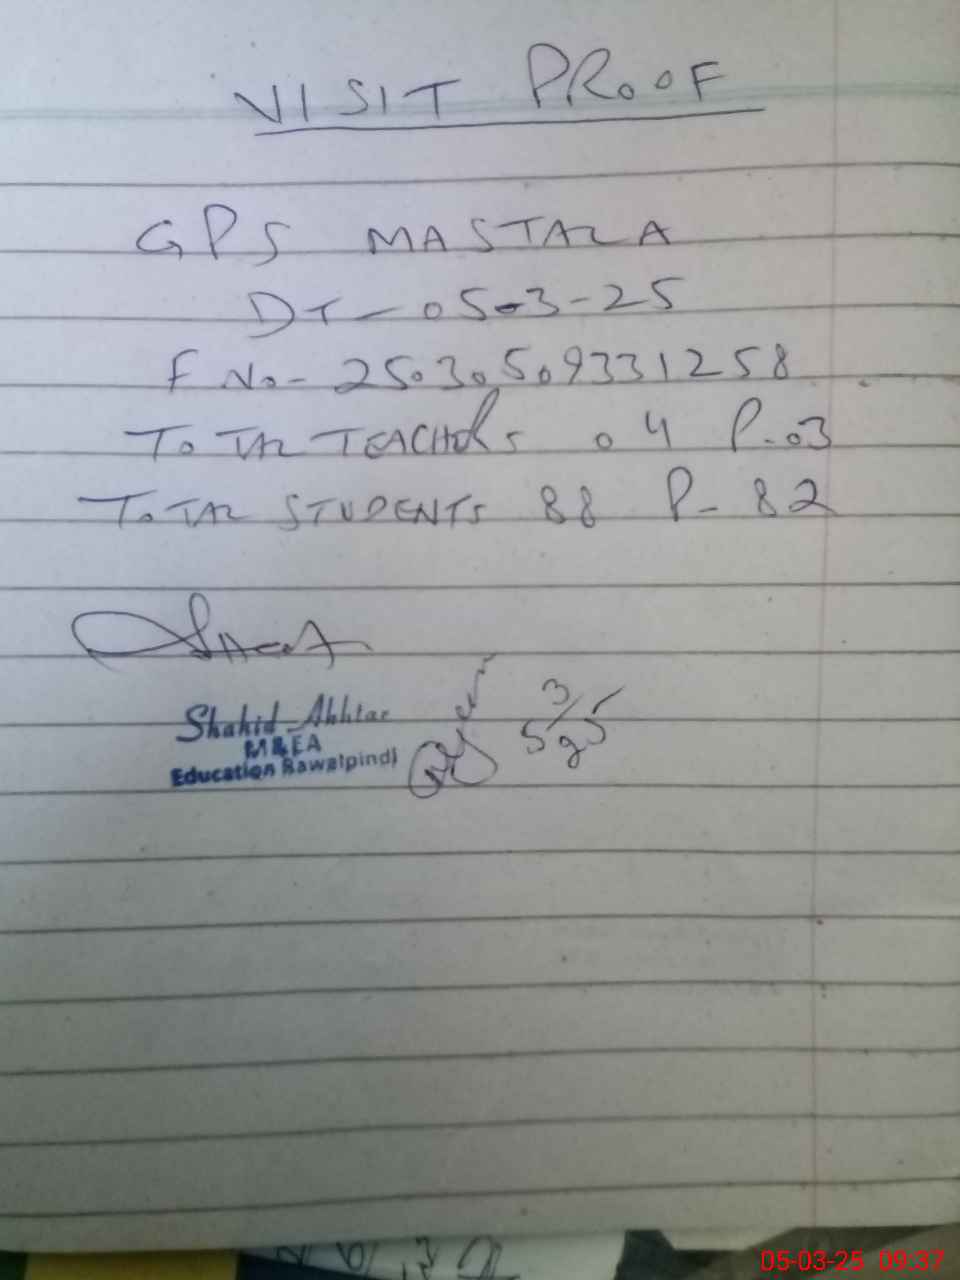 VISIT PROOF
GPS MASTALA
DT - 05-3-25
F No - 25030509331258
TOTAL TEACHERS 04 P-03
TOTAL STUDENTS 88 P- 82
Shahid Akhtar
M&EA
Education Rawalpindi
5/3/25
05-03-25 09:37